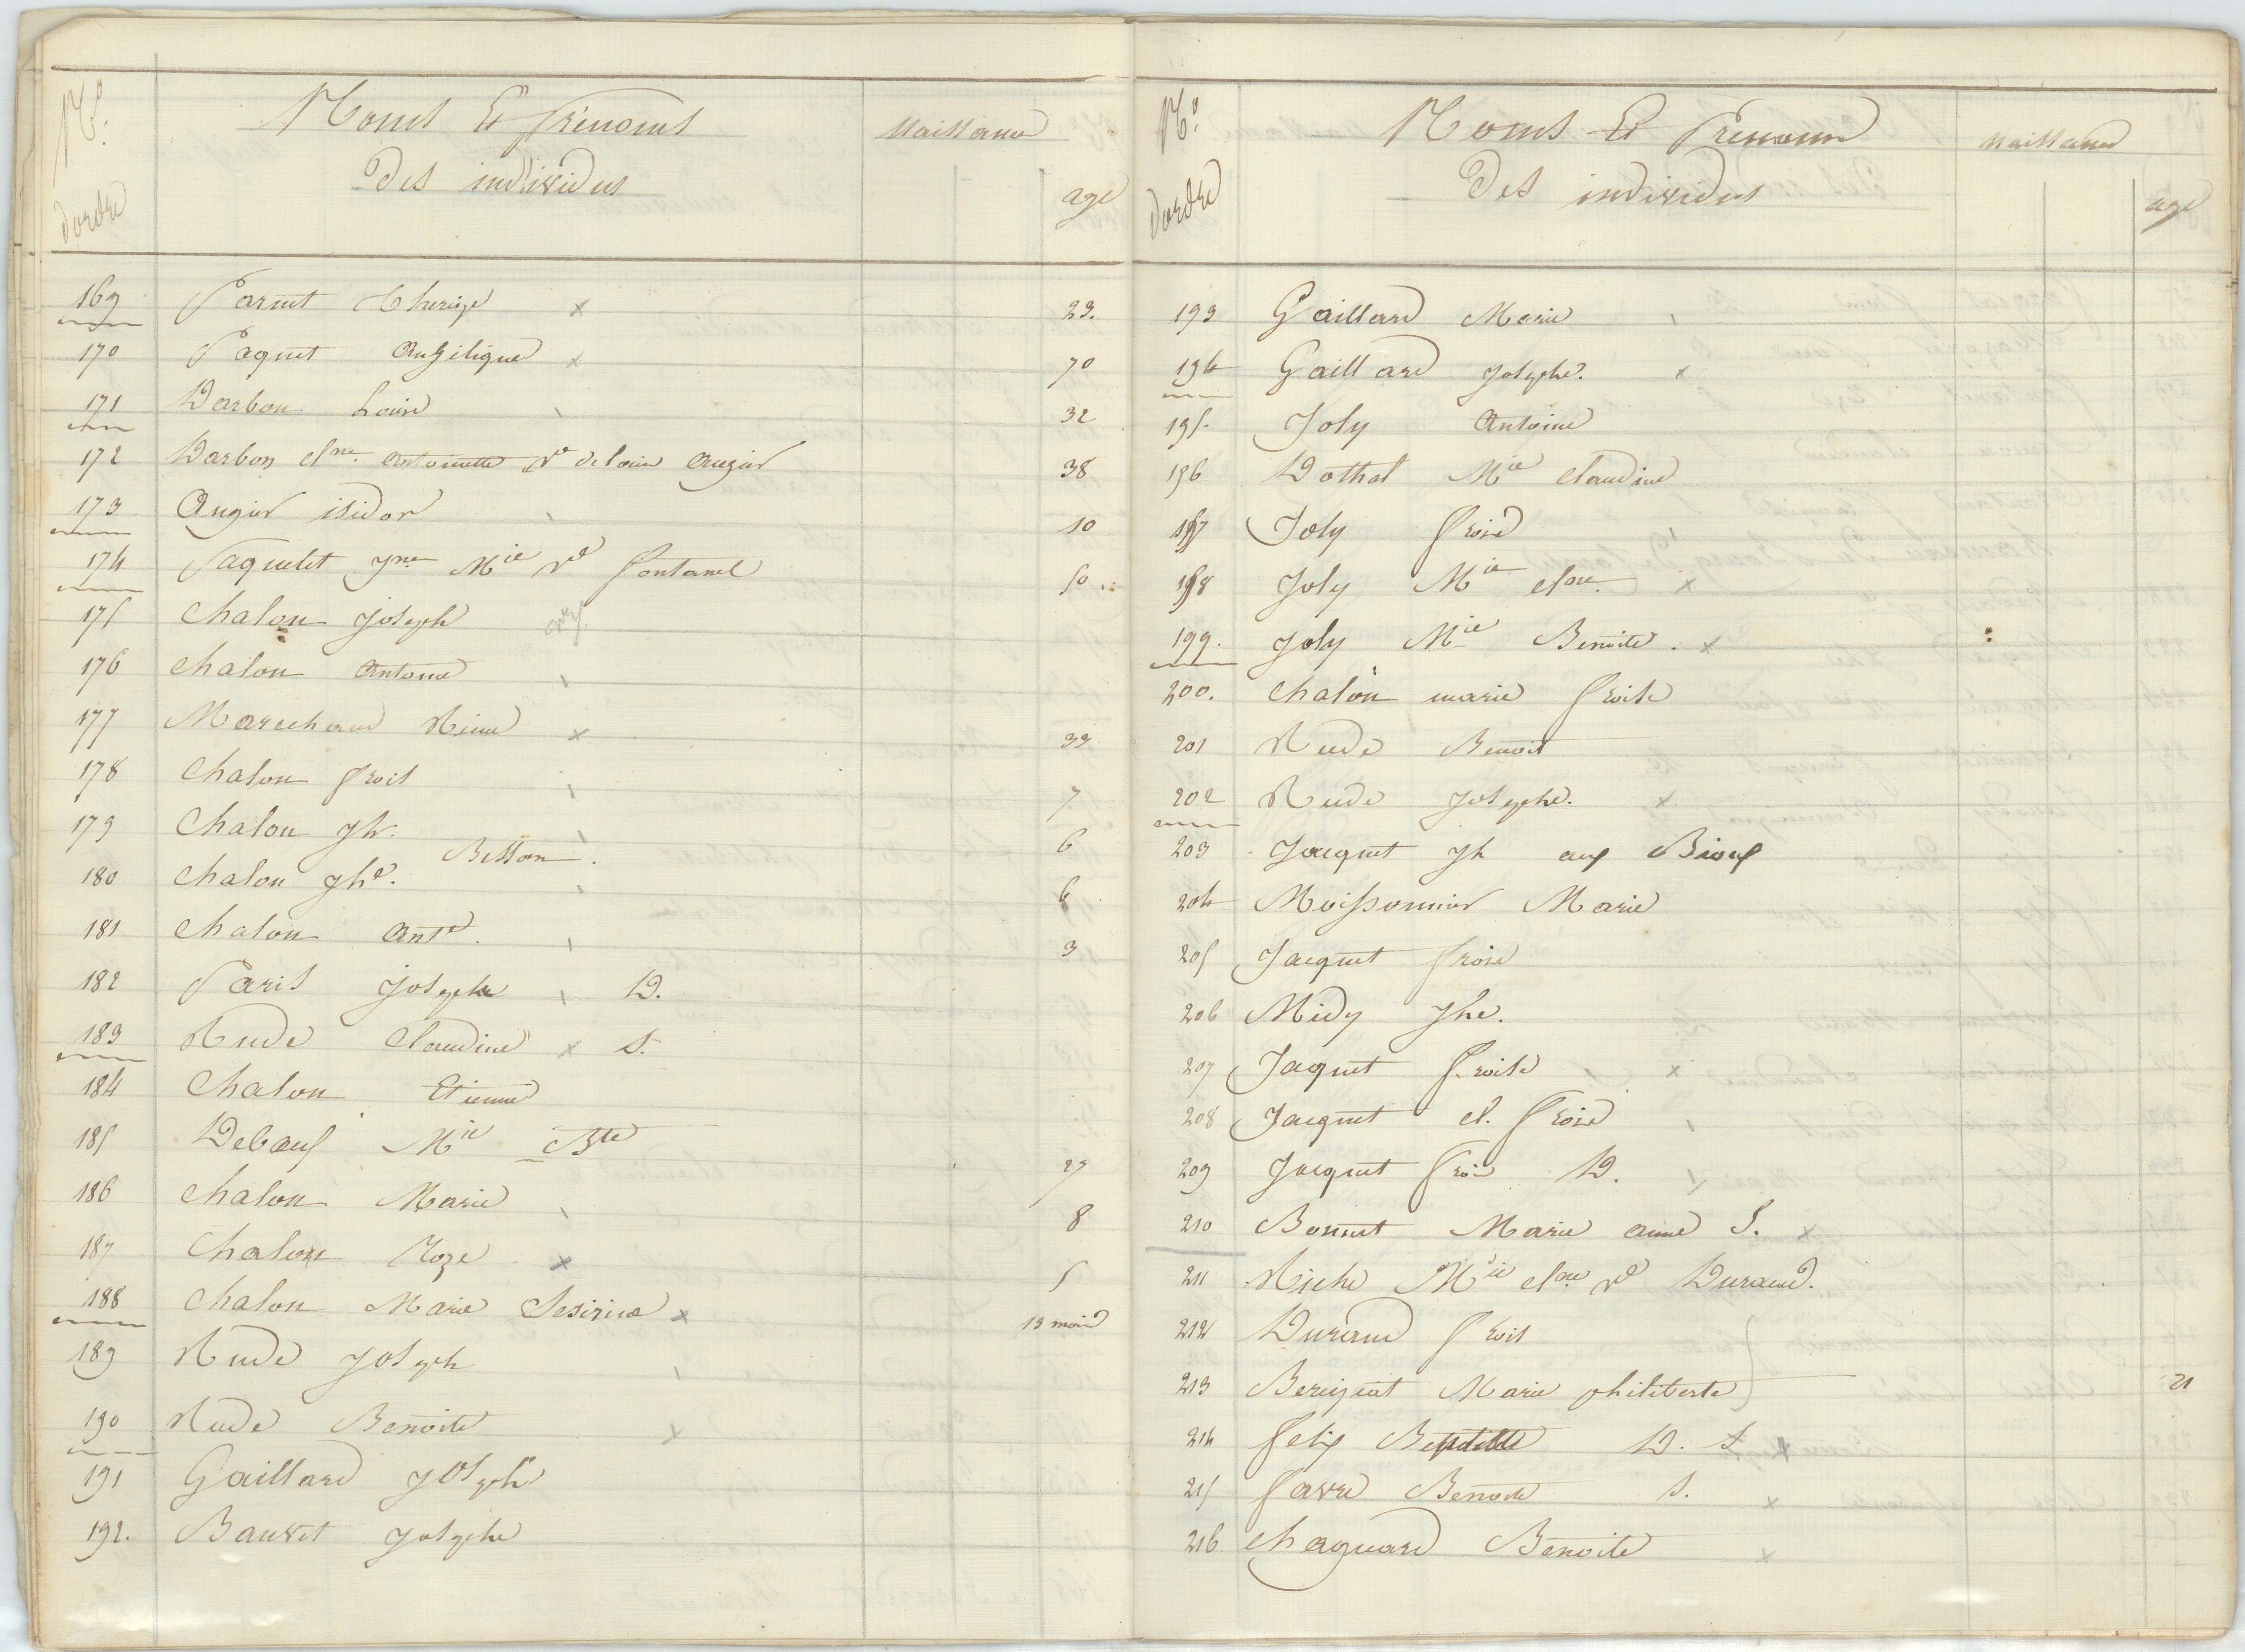 No. dordre
Noms Et Prenoms
Des individus
Naissance
age
169 Parnet Therèze x 23.
170 Paquet Angelique x 70
171 Darbon Louis 32
172 Darbon Cl.ne antoinette Ve de louis Augier 38
173 Augier isidor 10
174 Paquelet Jne Mie Ve Fontanel 50
175 Chalon Joseph
176 Chalon Antoine
177 Marechaud Reine x 33
178 Chalon frois 7
179 Chalon Jh. 6
Besson.
180 Chalon Jhe. 6
181 Chalon Ante. 3
182 Paris Josephe D.
183 Rude Claudine x S.
184 Chalon Etienne
185 Debœuf Mie Bte 27
186 Chalon Marie 8
187 Chalon Roze x 5
188 Chalon Marie x 13 mois
189 Rude Joseph
190 Rude Benoite x
191 Gaillard Joseph
192. Bauvet Josephe
No. dordre
Noms Et Prenoms
Des individus
Naissance
age
193 Gaillard Marie
194 Gaillard Josephe. x
195 Joly Antoine
196 Dothal Mie Claudine
197 Joly frois
198 Joly Mie Cl.ne x
199. Joly Mie Benoite. x
200. Chalon marie froise
201 Rude Benoit
202 Rude Josephe. x
203 Jacquet Jh aux Bioux
204 Moissonnier Marie
205 Jacquet frois
206 Midy Jhe.
207 Jaquet froise x
208 Jacquet Cl. frois
209 Jacquet frois D.
210 Bonnet Marie anne S. x
211 Riche Mie Cl.ne Ve Durand.
212 Durand frois
213 Marie philiberte 21
214 Felix D. S x
215 Favre Benoite S. x
216 Chagnard Benoite x